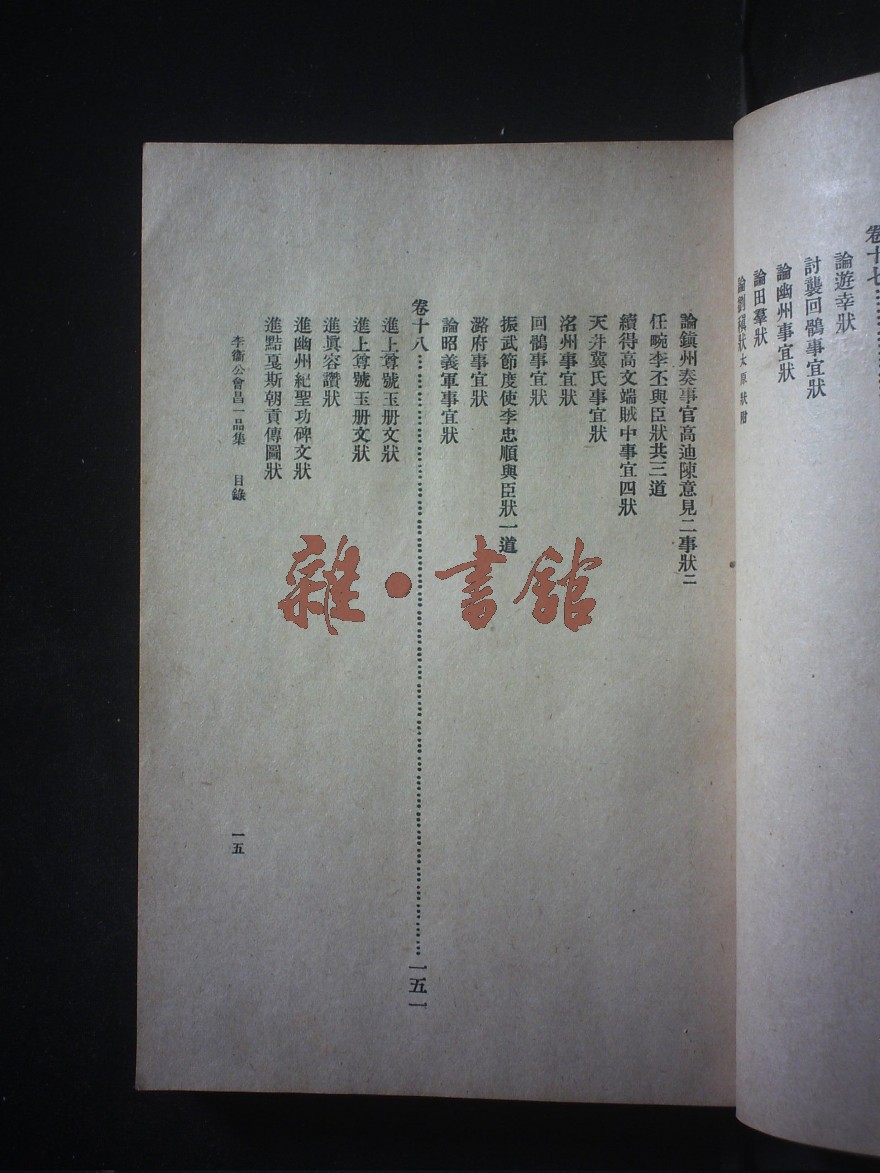 卷十七…………
論遊幸狀
討襲回鶻事宜狀
論幽州事宜狀
論田羣狀
論劉稹狀太原狀附
論鎭州奏事官高迪陳意見二事狀二
任畹李丕與臣狀共三道
續得高文端賊中事宜四狀
天井冀氏事宜狀
洺州事宜狀
回鶻事宜狀
振武節度使李忠順與臣狀一道
潞府事宜狀
論昭義軍事宜狀
卷十八…………一五一
進上尊號玉册文狀
進上尊號玉册文狀
進眞容讚狀
進幽州紀聖功碑文狀
進黠戛斯朝貢傳圖狀
李衞公會昌一品集 目錄
一五
雜·書館